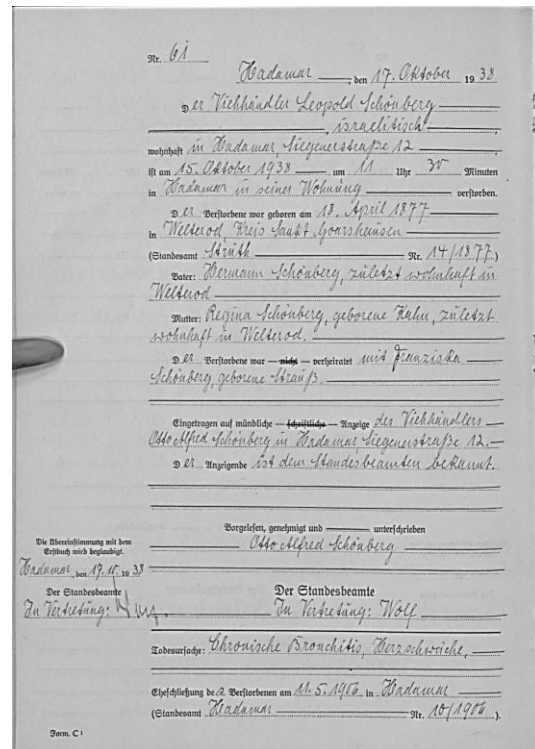 Nr. 61
Hadamar, den 17. Oktober 1938
Der Viehhändler Leopold Schönberg
, israelitisch
wohnhaft in Hadamar, Siegenerstraße 12
ist am 15. Oktober 1938 um 11 Uhr 30 Minuten
in Hadamar in seiner Wohnung verstorben.
Der Verstorbene war geboren am 18. April 1877
in Welterod, Kreis Sankt Goarshausen
(Standesamt Strüth Nr. 14/1877)
Vater: Hermann Schönberg, zuletzt wohnhaft in
Welterod
Mutter: Regina Schönberg, geborene Kahn, zuletzt
wohnhaft in Welterod.
Der Verstorbene war — nicht — verheiratet mit Franziska
Schönberg, geborene Strauß.
Eingetragen auf mündliche — schriftliche — Anzeige des Viehhändlers
Otto Alfred Schönberg in Hadamar, Siegenerstraße 12.
Der Anzeigende ist dem Standesbeamten bekannt.
Vorgelesen, genehmigt und unterschrieben
Otto Alfred Schönberg
Die Übereinstimmung mit dem
Erstbuch wird beglaubigt.
Hadamar, den 17.10.1938
Der Standesbeamte
In Vertretung:
Der Standesbeamte
In Vertretung: Wolf
Todesursache: Chronische Bronchitis, Herzschwäche,
Eheschließung des Verstorbenen am 11.5.1906 in Hadamar
(Standesamt Hadamar Nr. 10/1906).
Form. C 1